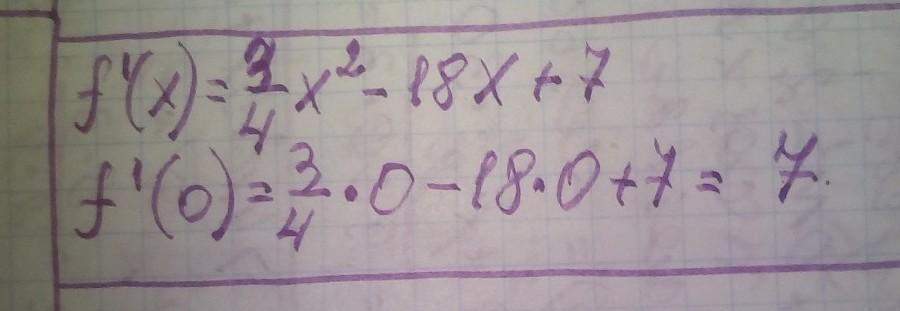 f'(x) = 3/4 x² - 18x + 7
f'(0) = 3/4 · 0 - 18 · 0 + 7 = 7.